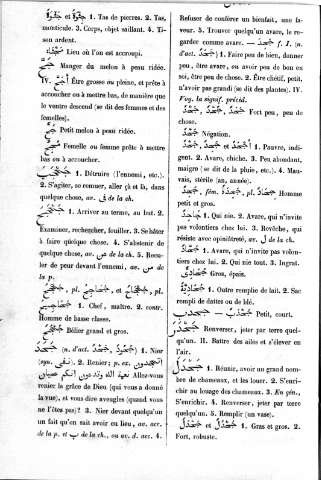 جثوة et جثوة 1. Tas de pierres. 2. Tas,
monticule. 3. Corps, objet saillant. 4. Ti-
son ardent.
Lieu où l'on est accroupi.
Manger du melon à peau ridée.
IV. Être grosse ou pleine, et prête à
accoucher ou à mettre bas, de manière que
le ventre descend (se dit des femmes et des
femelles).
Petit melon à peau ridée.
Femelle ou femme prête à mettre
bas ou à accoucher.
1. Détruire (l'ennemi, etc.).
2. S'agiter, se remuer, aller çà et là, dans
quelque chose, av. فى de la ch.
1. Arriver au terme, au but. 2.
Examiner, rechercher, fouiller. 3. Se hâter
à faire quelque chose. 4. S'abstenir de
quelque chose, av. de la ch. 5. Recu-
ler de peur devant l'ennemi, av.
la p.
pl. et pl.
1. Chef, maître. 2. contr.
Homme de basse classe.
Bélier grand et gros.
جحد (n. d'act. جحد, جحود) 1. Nier
(syn. نفى). 2. Renier; p. ex.
Allez-vous
renier la grâce de Dieu (qui vous a donné
la vue), et vous dire aveugles (quand vous
ne l'êtes pas)? 3. Nier devant quelqu'un
un fait qu'en sait avoir eu lieu, av. acc.
de la p. et ب de la ch., ou av. d. acc. 4.
Refuser de conférer un bienfait, une fa-
veur. 5. Trouver quelqu'un avare, le re-
garder comme avare. — جحد f. I. (n.
d'act. جحد) 1. Faire peu de bien, donner
peu, être avare, ou avoir peu de bon en
soi, être peu de chose. 2. Être chétif, petit,
n'avoir pas grandi (se dit des plantes). IV.
Voy. la signif. précéd.
جحد, جحد, جحد Fort peu, peu de
chose.
جحد Négation.
جحد et أجحد 1. Pauvre, indi-
gent. 2. Avare, chiche. 3. Peu abondant,
maigre (se dit de la pluie, etc.). 4. Mau-
vais, stérile (an, année).
جحد, fém. جحدة, pl. جحاد Homme
petit et gros.
جاحد 1. Qui nie. 2. Avare, qui n'invite
pas volontiers chez lui. 3. Revêche, qui
résiste avec opiniâtreté, av. ل de la ch.
1. Avare, qui n'invite pas volon-
tiers chez lui. 2. Qui nie tout. 3. Ingrat.
جحادى Gros, épais.
جحادية 1. Outre remplie de lait. 2. Sac
rempli de dattes ou de blé.
جحدب — جحدب Petit, court.
جحدر Renverser, jeter par terre quel-
qu'un. II. Battre des ailes et s'élever en
l'air.
جحدل 1. Réunir, avoir un grand nom-
bre de chameaux, et les louer. 2. S'enri-
chir au louage des chameaux. 3. En gén.,
S'enrichir. 4. Renverser, jeter par terre
quelqu'un. 5. Remplir (un vase).
جحدل et جحدل 1. Gras et gros. 2.
Fort, robuste.